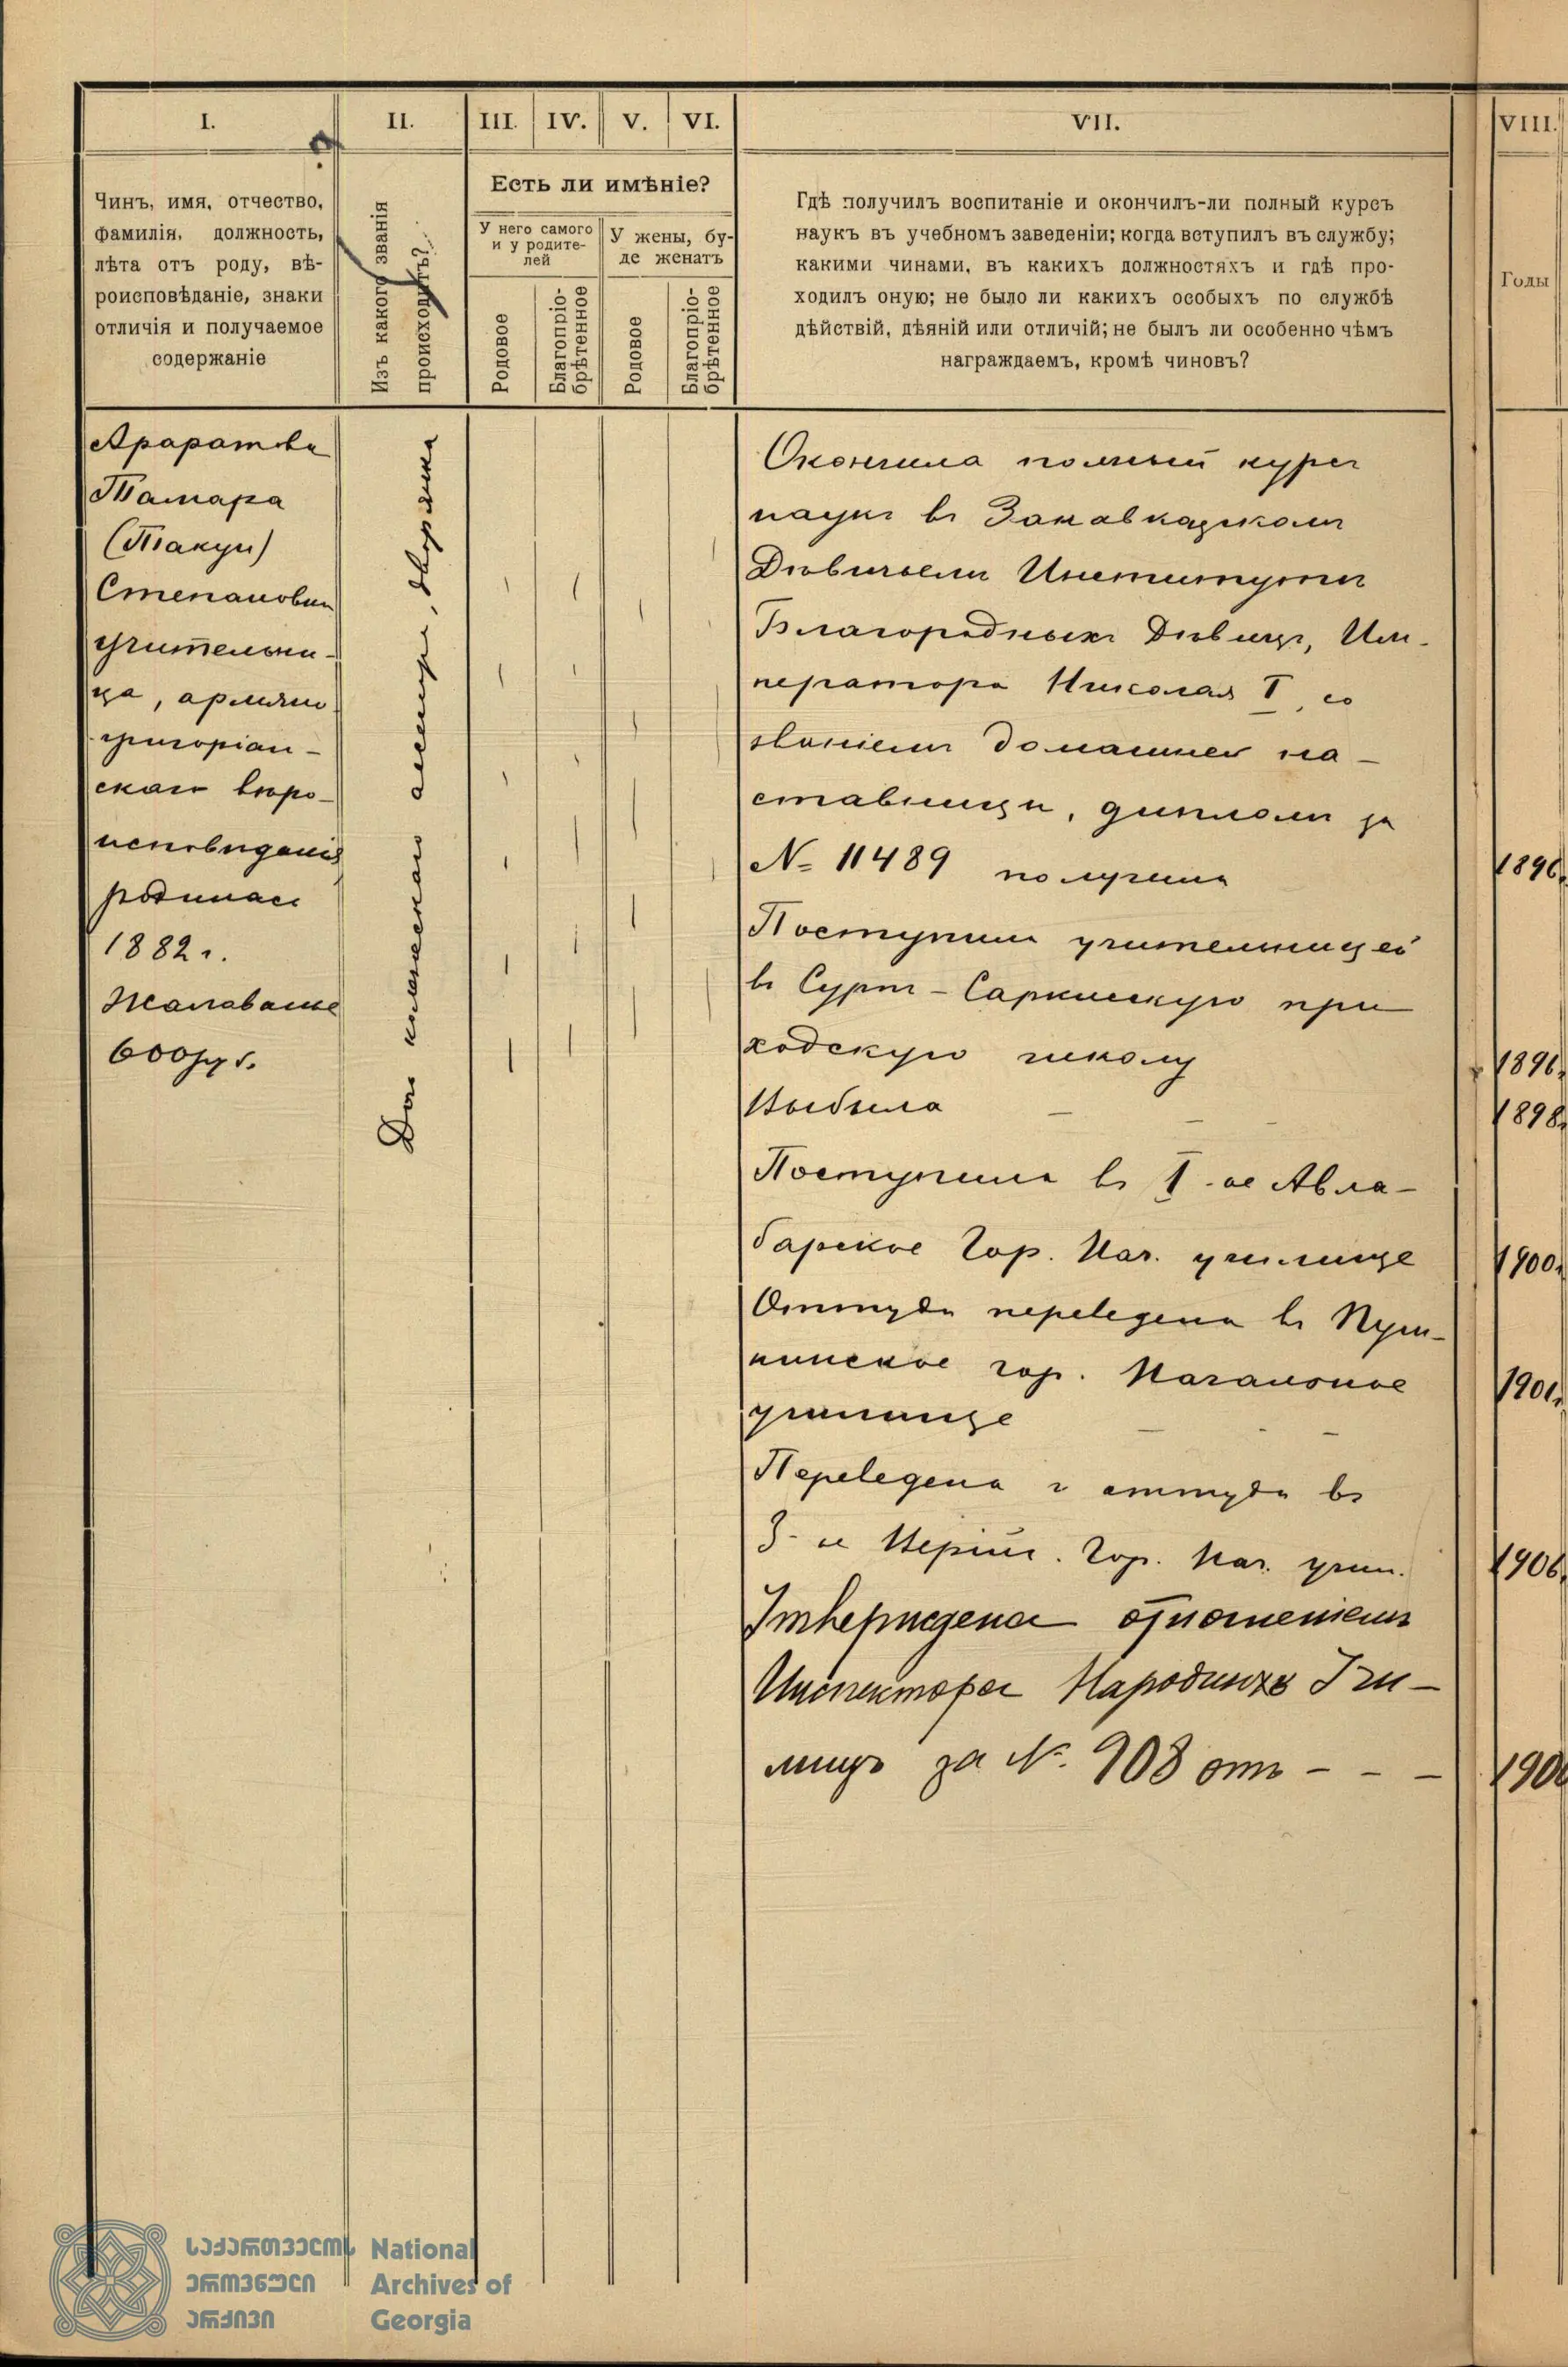 I.
II.
III.
IV.
V.
VI.
VII.
VIII.
Чинъ, имя, отчество,
фамилія, должность,
лѣта отъ роду, вѣ-
роисповѣданіе, знаки
отличія и получаемое
содержаніе
Изъ какого званія
происходитъ?
Есть ли имѣніе?
У него самого
и у родите-
лей
У жены, бу-
де женатъ
Родовое
Благопріо-
брѣтенное
Родовое
Благопріо-
брѣтенное
Гдѣ получилъ воспитаніе и окончилъ-ли полный курсъ
наукъ въ учебномъ заведеніи; когда вступилъ въ службу;
какими чинами, въ какихъ должностяхъ и гдѣ про-
ходилъ оную; не было ли какихъ особыхъ по службѣ
дѣйствій, дѣяній или отличій; не былъ ли особенно чѣмъ
награждаемъ, кромѣ чиновъ?
Годы
Араратова
Тамара
(Такуи)
Степановна
учительни-
ца, армяно
григоріан-
скаго вѣро-
исповѣданія
родилась
1882 г.
Жалованье
600 руб.
Дочь коллежскаго ассесора, дворянка
Окончила полный курсъ
наукъ въ Закавказскомъ
Дѣвичьемъ Институтѣ
Благородныхъ Дѣвицъ, Им-
ператора Николая I, со
званіемъ домашней на-
ставницы, дипломъ за
№ 11489 получила
1896
Поступила учительницей
въ Сурпъ-Саркисскую при
ходскую школу
1896
Выбыла — — -
1898
Поступила въ I-ое Авла-
барское Гор. Нач. училище
1900
Оттуда переведена въ Пуш-
кинское гор. Начальное
1901
училище — - —
Переведена и оттуда въ
3-е Верійс. Гор. Нач. учил.
1906
Утверждена отношеніемъ
Инспектора Народныхъ Учи-
лищъ за № 908 отъ - - -
190
საქართველოს
ეროვნული
არქივი
National
Archives of
Georgia